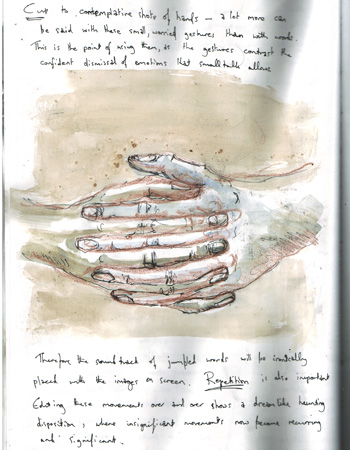 Cuts to contemplative shots of hands — a lot more can
be said with these small, worried gestures than with words.
This is the point of using them, as the gestures contrast the
confident dismissal of emotions that smalltalk allows
Therefore the soundtrack of jumpled words will be ironically
placed with the images on screen. Repetition is also important
Editing these movements over and over shows a dreamlike haunting
disposition, where insignificant movements now become recurring
and significant.